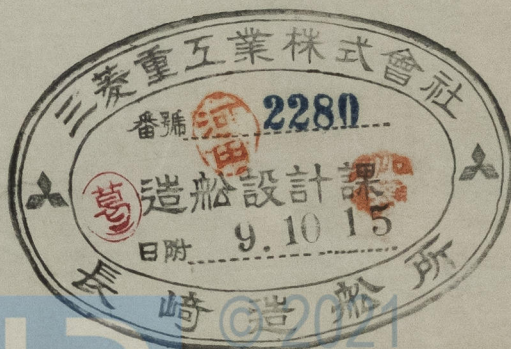 三菱重工業株式會社
番號 2280
河田
葛
造船設計課
日附 9.10 15
長崎造船所
©2021